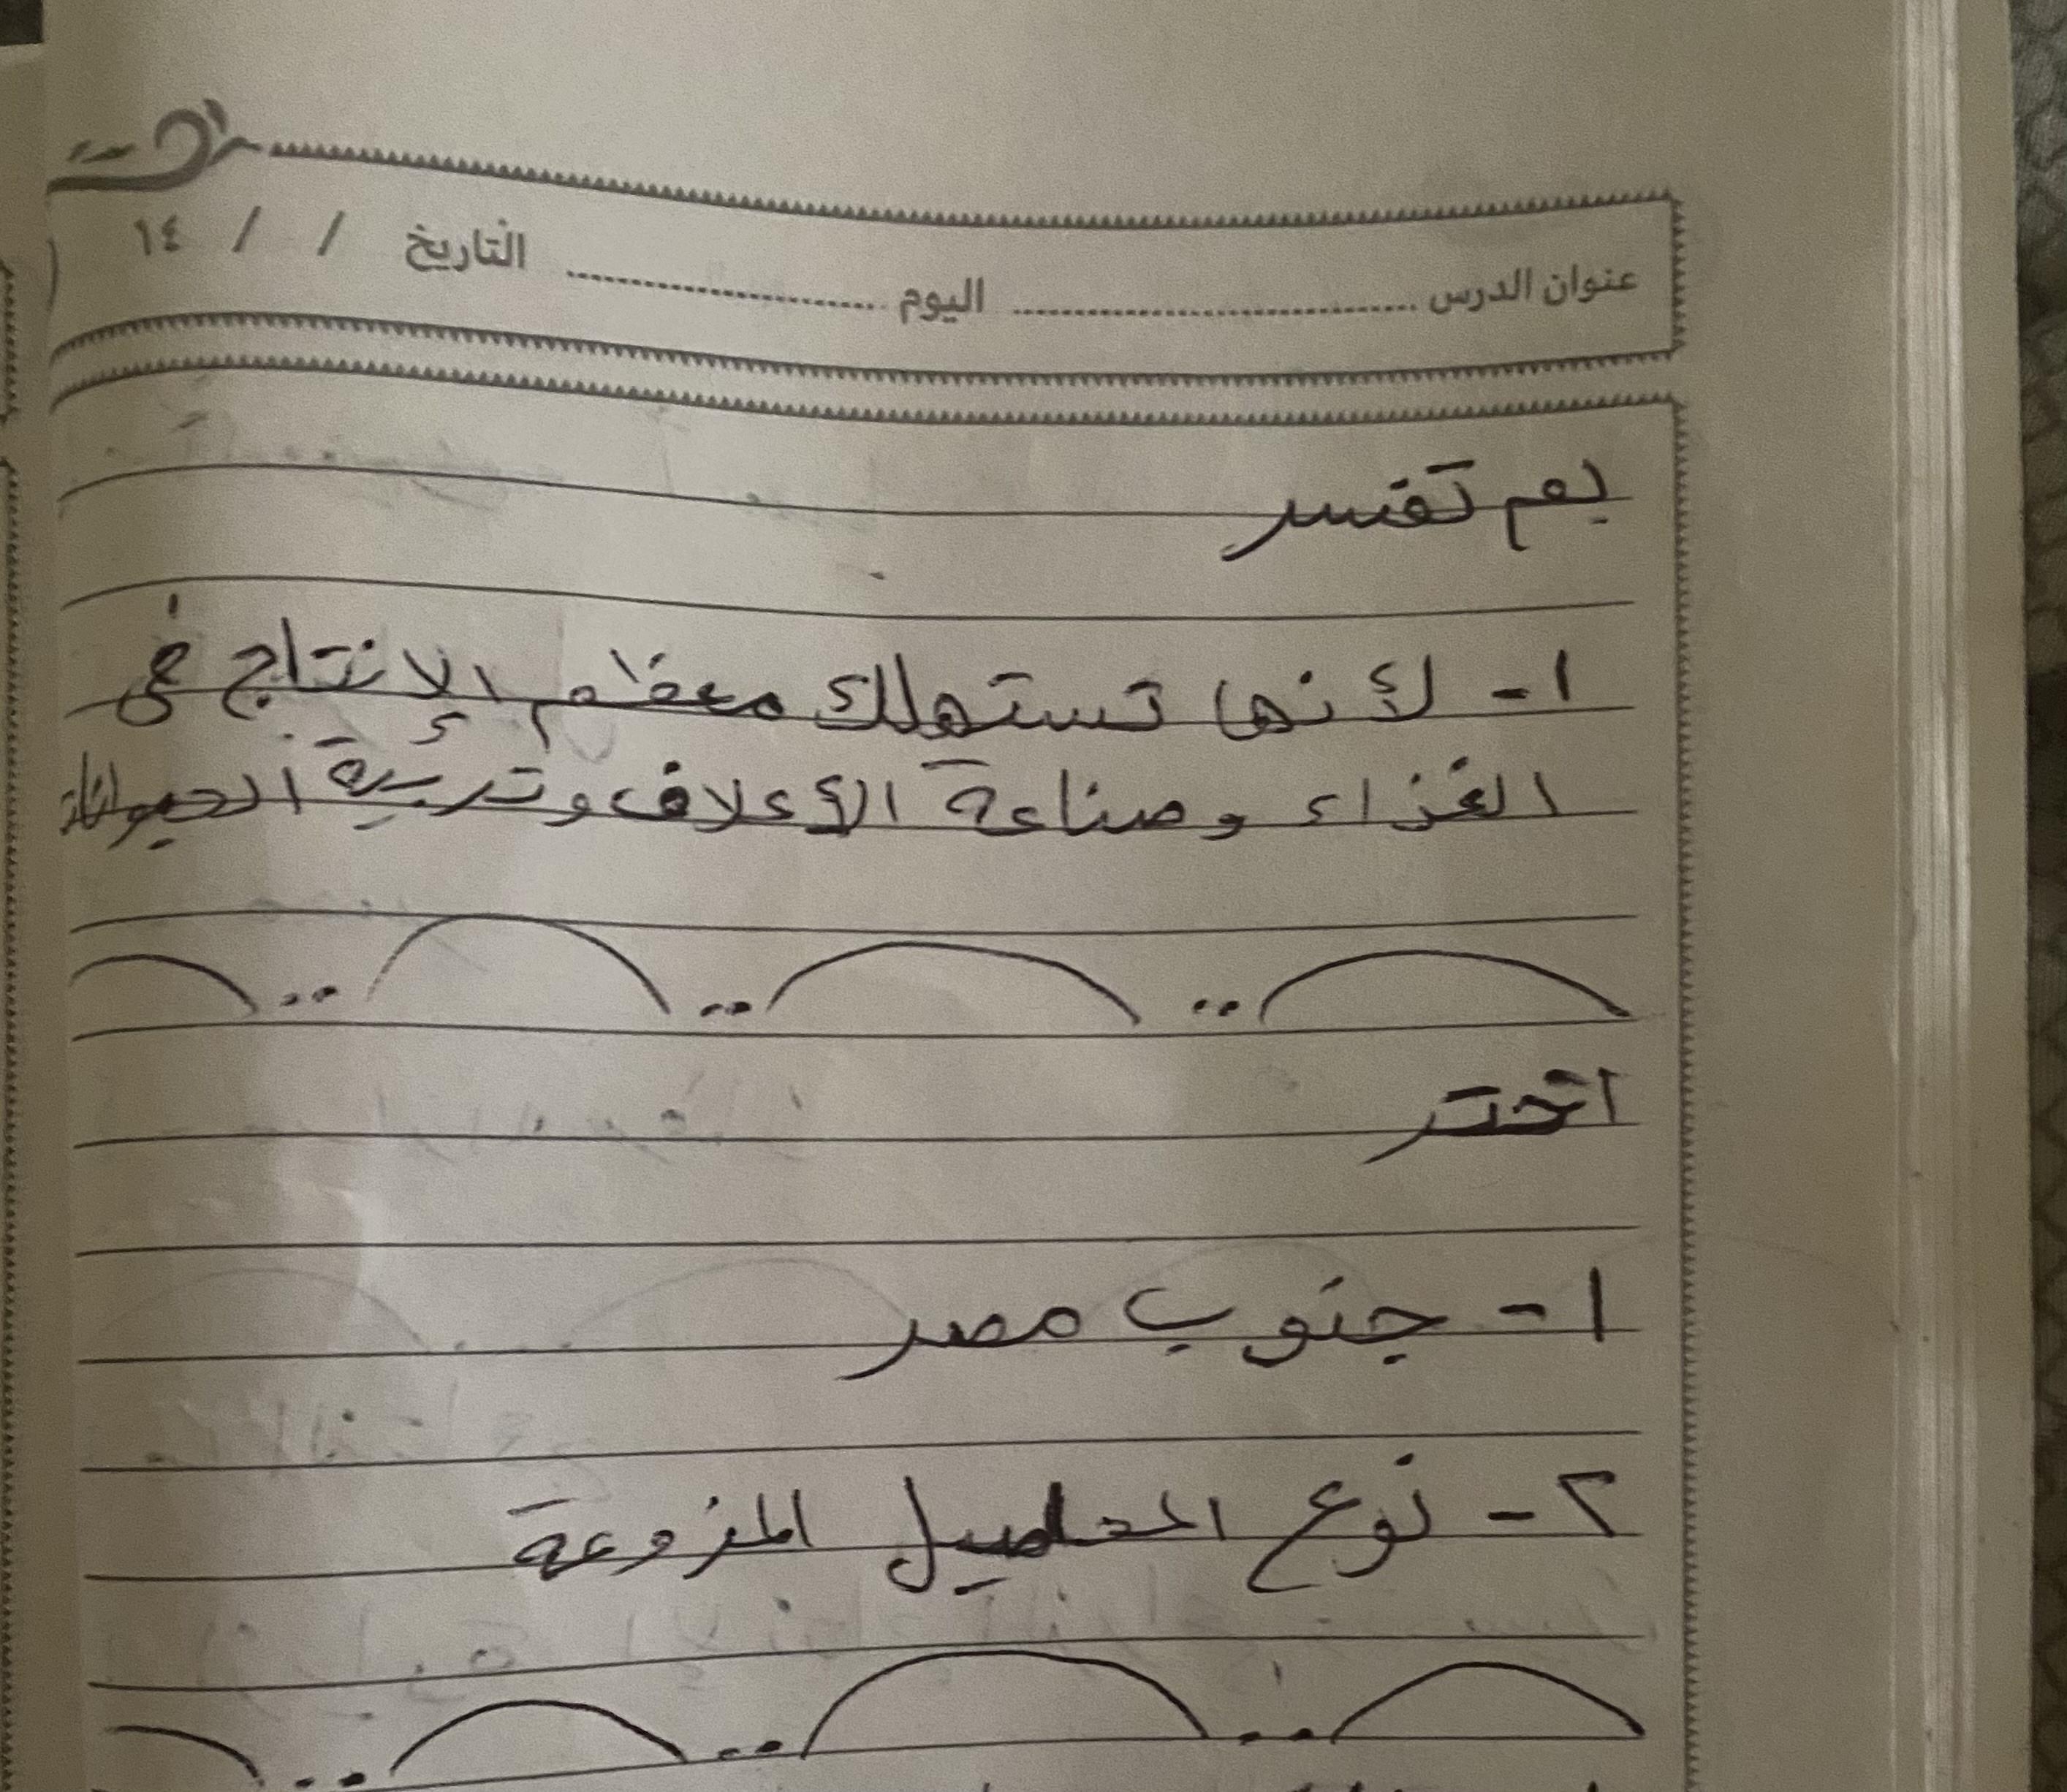 عنوان الدرس ........ اليوم ........ التاريخ / / ١٤
بم تفسر
١- لأنها تستهلك معظم الإنتاج في
الغذاء وصناعة الأعلاف وتربية الحيوانات
اختر
١- جنوب مصر
٢- نوع المحاصيل المزوعة